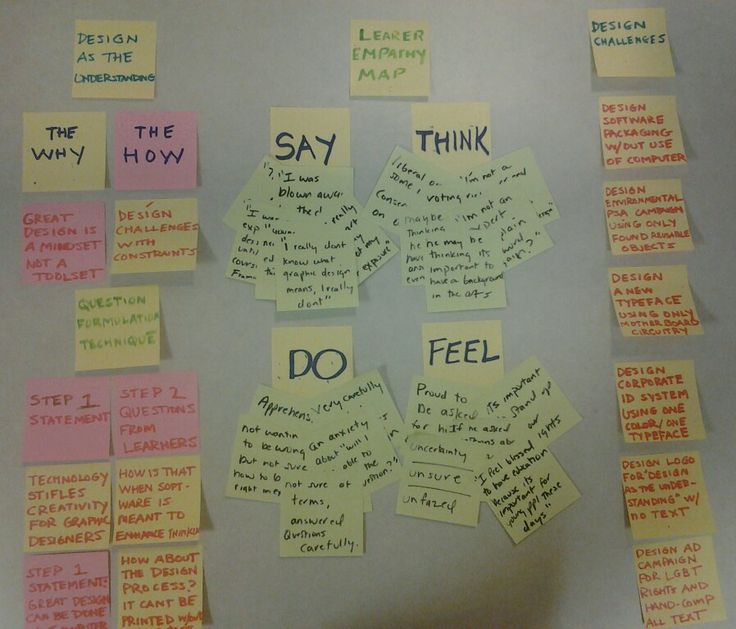 DESIGN
AS THE
UNDERSTANDING
THE
WHY
THE
HOW
GREAT
DESIGN IS
A MINDSET
NOT A
TOOLSET
DESIGN
CHALLENGES
WITH
CONSTRAINTS
QUESTION
FORMULATION
TECHNIQUE
STEP 1
STATEMENT
STEP 2
QUESTIONS
FROM
LEARNERS
TECHNOLOGY
STIFLES
CREATIVITY
FOR GRAPHIC
DESIGNERS
HOW IS THAT
WHEN SOFT-
WARE IS
MEANT TO
ENHANCE THINKIN
STEP 1
STATEMENT:
GREAT DESIGN
CAN BE DONE
HOW ABOUT
THE DESIGN
PROCESS?
IT CANT BE
PRINTED W/OUT
LEARER
EMPATHY
MAP
SAY
"I was
blown awa
really
"I really dont
know what
graphic design
means, I really
dont"
THINK
liberal o
some, voting
Conser
on
"I'm not a
"I'm not an
maybe
thinking
he he may be
thinking its
important to
even have a background
in the arts
DO
Apprehens
very carefully
not wantin
to be wrong
but not sure
how to
right
an anxiety
about "will I
able to
not sure of
terms,
answered
Questions
carefully.
FEEL
Proud to
be asked
for hi
its important
Stand up
our
rights
If he asked
uncertainty
unsure
unfazed
I feel blessed
to have education
because its
important for
young ppl these
days"
DESIGN
CHALLENGES
DESIGN
SOFTWARE
PACKAGING
W/OUT USE
OF COMPUTER
DESIGN
ENVIRONMENTAL
PSA CAMPAIGN
USING ONLY
FOUND REUSABLE
OBJECTS
DESIGN
A NEW
TYPEFACE
USING ONLY
MOTHERBOARD
CIRCUITRY
DESIGN
CORPORATE
ID SYSTEM
USING ONE
COLOR/ONE
TYPEFACE
DESIGN LOGO
FOR "DESIGN
AS THE UNDER-
STANDING" W/
NO TEXT
DESIGN AD
CAMPAIGN
FOR LGBT
RIGHTS AND
HAND-COMP
ALL TEXT